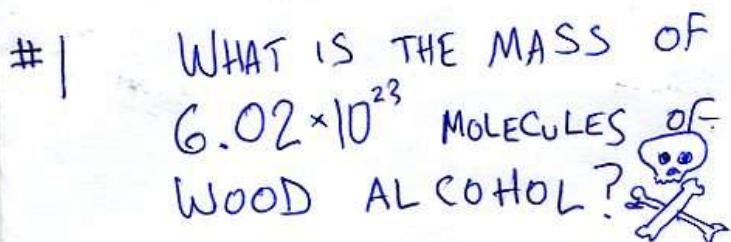 #1 WHAT IS THE MASS OF
6.02×10²³ MOLECULES OF
WOOD ALCOHOL?